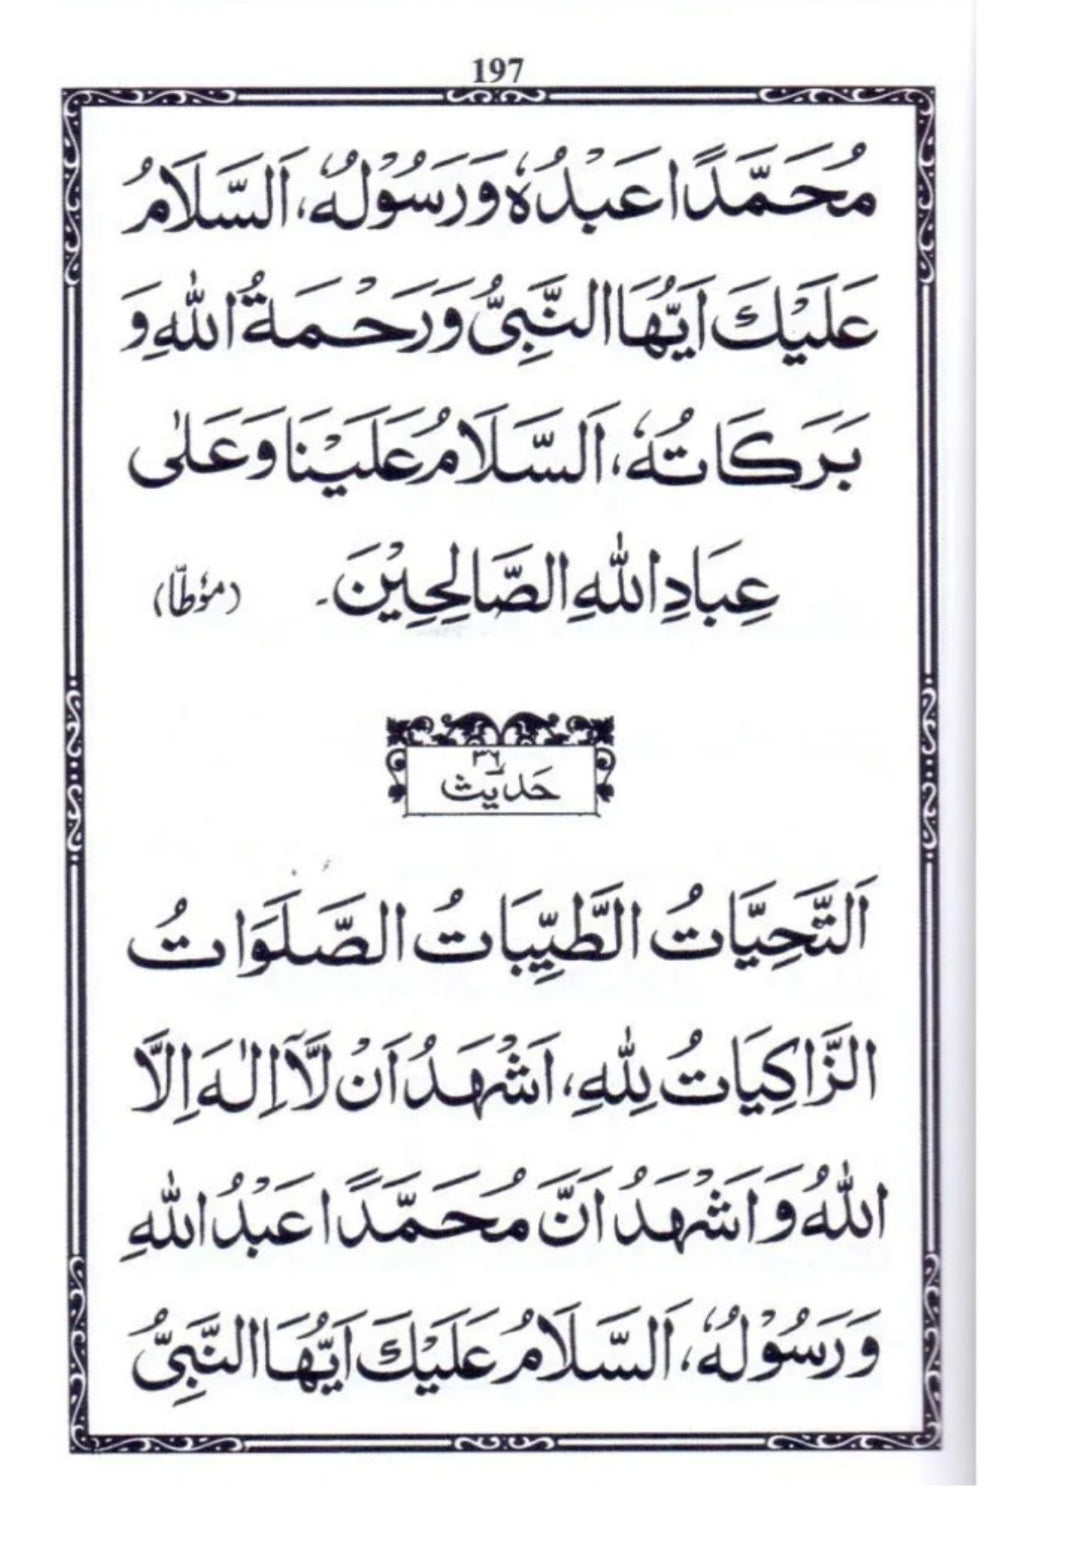 197
مُحَمَّدًا عَبْدُهٗ وَرَسُوْلُهٗ، اَلسَّلَامُ
عَلَيْكَ اَيُّهَا النَّبِيُّ وَرَحْمَةُ اللهِ وَ
بَرَكَاتُهٗ، اَلسَّلَامُ عَلَيْنَا وَعَلٰى
عِبَادِ اللهِ الصَّالِحِيْنَ۔ (مؤطّا)
حَديث ٣٦
اَلتَّحِيَّاتُ الطَّيِّبَاتُ الصَّلَوَاتُ
الزَّاكِيَاتُ لِلّٰهِ، اَشْهَدُ اَنْ لَّآ اِلٰهَ اِلَّا
اللهُ وَاَشْهَدُ اَنَّ مُحَمَّدًا عَبْدُ اللهِ
وَرَسُوْلُهٗ، اَلسَّلَامُ عَلَيْكَ اَيُّهَا النَّبِيُّ